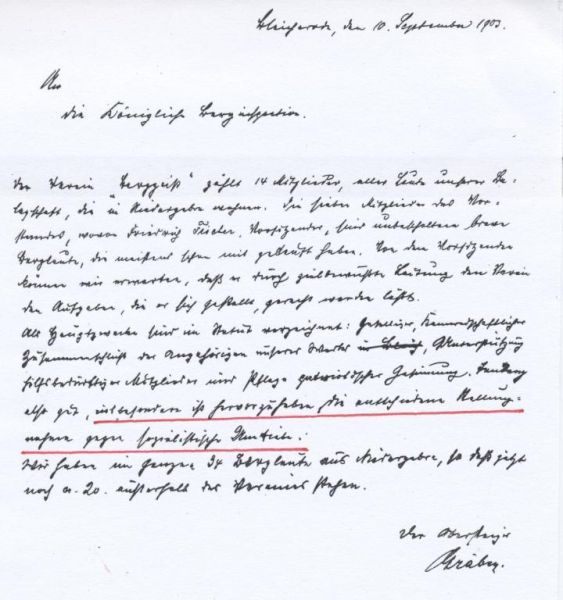 Bleicherode, den 10. September 1903.
An
die Königliche Berginspection.
Der Verein "Berggeist" zählt 14 Mitglieder, alles Leute unserer Be-
legschaft, die in Niedergebra wohnen. Die sieben Mitglieder des Vor-
standes, wovon Friedrich Vorsitzender, sind unbescholtene brave
Bergleute, die meistens schon mit haben. Von dem Vorsitzenden
können wir erwarten, daß er durch zielbewußte Leitung den Verein
den Aufgaben, die er sich gestellt, gerecht werden läßt.
Als Hauptzwecke sind im Statut verzeichnet: Geselliger, kameradschaftlicher
Zusammenschluß der Angehörigen unserer Werke, Unterstützung
hilfsbedürftiger Mitglieder und Pflege patriotischer Gesinnung. Tendenz
also gut, insbesondere ist hervorzuheben die entschiedene Stellung-
nahme gegen sozialistische Umtriebe.
Wir haben im Ganzen 34 Bergleute aus Niedergebra, so daß jetzt
noch 20 außerhalb des Vereins stehen.
Der Obersteiger
Gräbe.